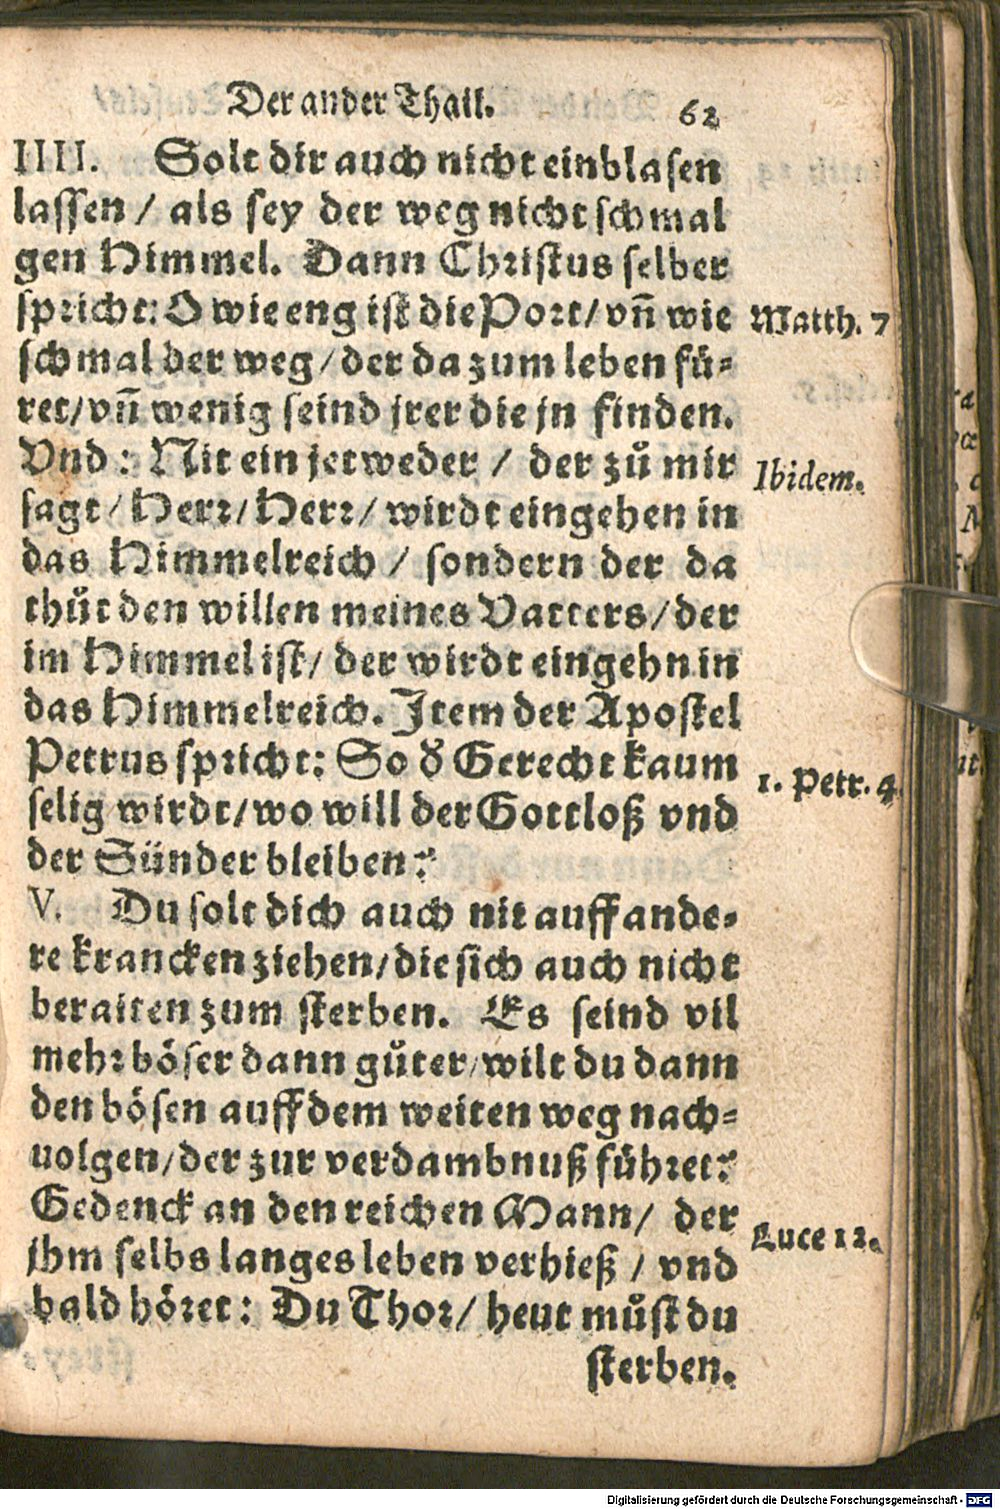 Der ander Thail. 62
IIII. Solt dir auch nicht einblasen
lassen / als sey der weg nicht schmal
gen Himmel. Dann Christus selber
spricht: O wie eng ist die Port / vñ wie
Matth. 7
schmal der weg / der da zum leben fü-
ret / vñ wenig seind jrer die jn finden.
Vnd : Nit ein jetweder / der zů mir
Ibidem.
sagt / Herr / Herr / wirdt eingehen in
das Himmelreich / sondern der da
thůt den willen meines Vatters / der
im Himmel ist / der wirdt eingehn in
das Himmelreich. Item der Apostel
Petrus spricht: So d̕ Gerecht kaum
1. Petr. 4.
selig wirdt / wo will der Gottloß vnd
der Sünder bleiben?
V. Du solt dich auch nit auff ande-
re krancken ziehen / die sich auch nicht
beraiten zum sterben. Es seind vil
mehr böser dann gůter / wilt du dann
den bösen auff dem weiten weg nach-
uolgen / der zur verdambnuß führet?
Gedenck an den reichen Mann / der
Luce 12.
jhm selbs langes leben verhieß / vnd
bald höret : Du Thor / heut můst du
sterben.
Digitalisierung gefördert durch die Deutsche Forschungsgemeinschaft - DFG